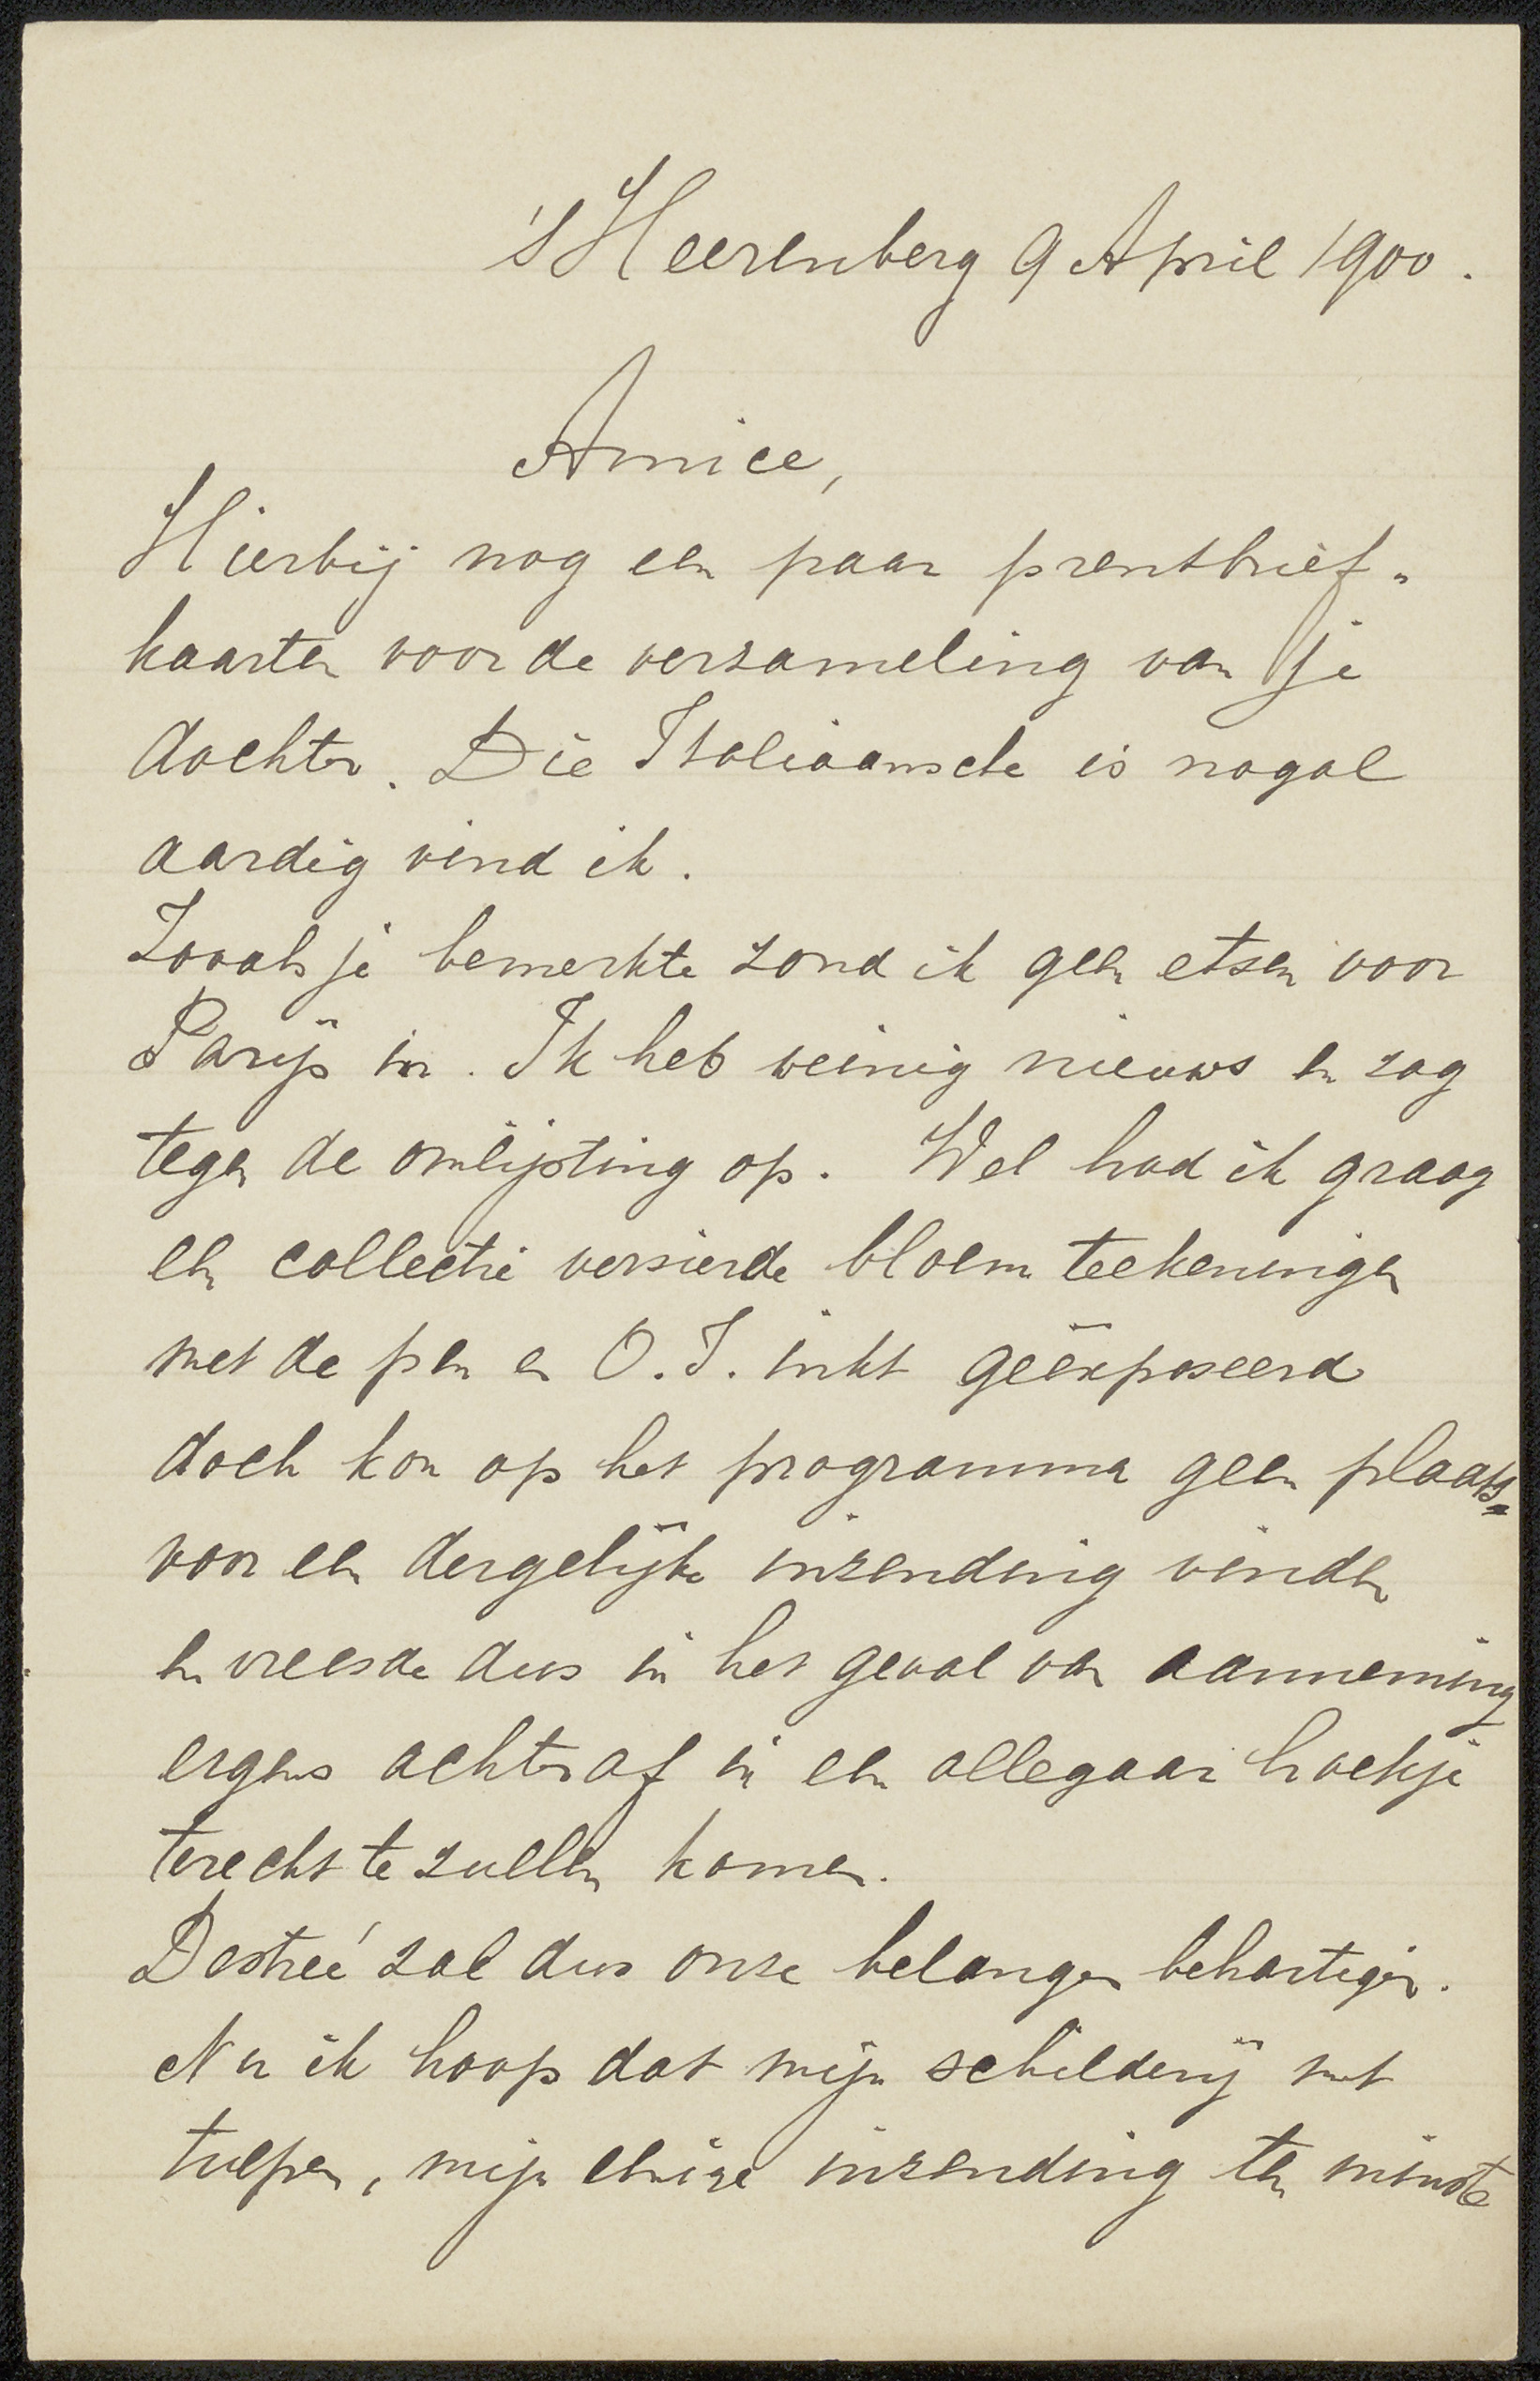 'sHeerenberg 9 April 1900.
Amice,
Hierbij nog een paar prentbrief-
kaarten voor de verzameling van je
dochter. Die Italiaansche is nogal
aardig vind ik.
Zooals je bemerkte zond ik geen etsen voor
Parijs in. Ik heb weinig nieuws en zag
tegen de omlijsting op. Wel had ik graag
een collectie versierde bloem teekeningen
met de pen en O.I. inkt geëxposeerd
doch kon op het programma geen plaats
voor een dergelijke inzending vinden
en vreesde dus in het geval van aanneming
ergens achteraf in een allegaar hoekje
terecht te zullen komen.
Destreé zal dus onze belangen behartigen.
Nu ik hoop dat mijn schilderij met
tulpen, mijn eenige inzending ten minste